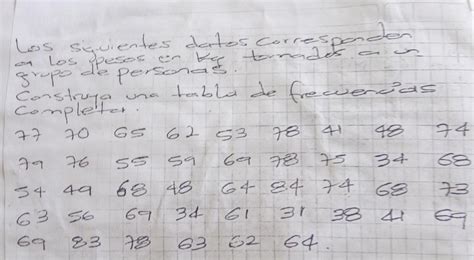 Los siguientes datos corresponden
a los pesos en Kg tomados a un
grupo de personas.
Construya una tabla de frecuencias
completa.
77 70 65 62 53 78 41 48 74
79 76 55 59 69 78 75 34 68
54 49 68 48 64 84 74 68 73
63 56 69 34 61 31 38 41 69
69 83 78 63 62 64.